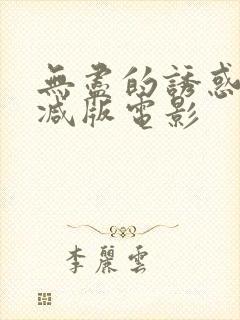 無盡的誘惑
減版電影
李麗雲